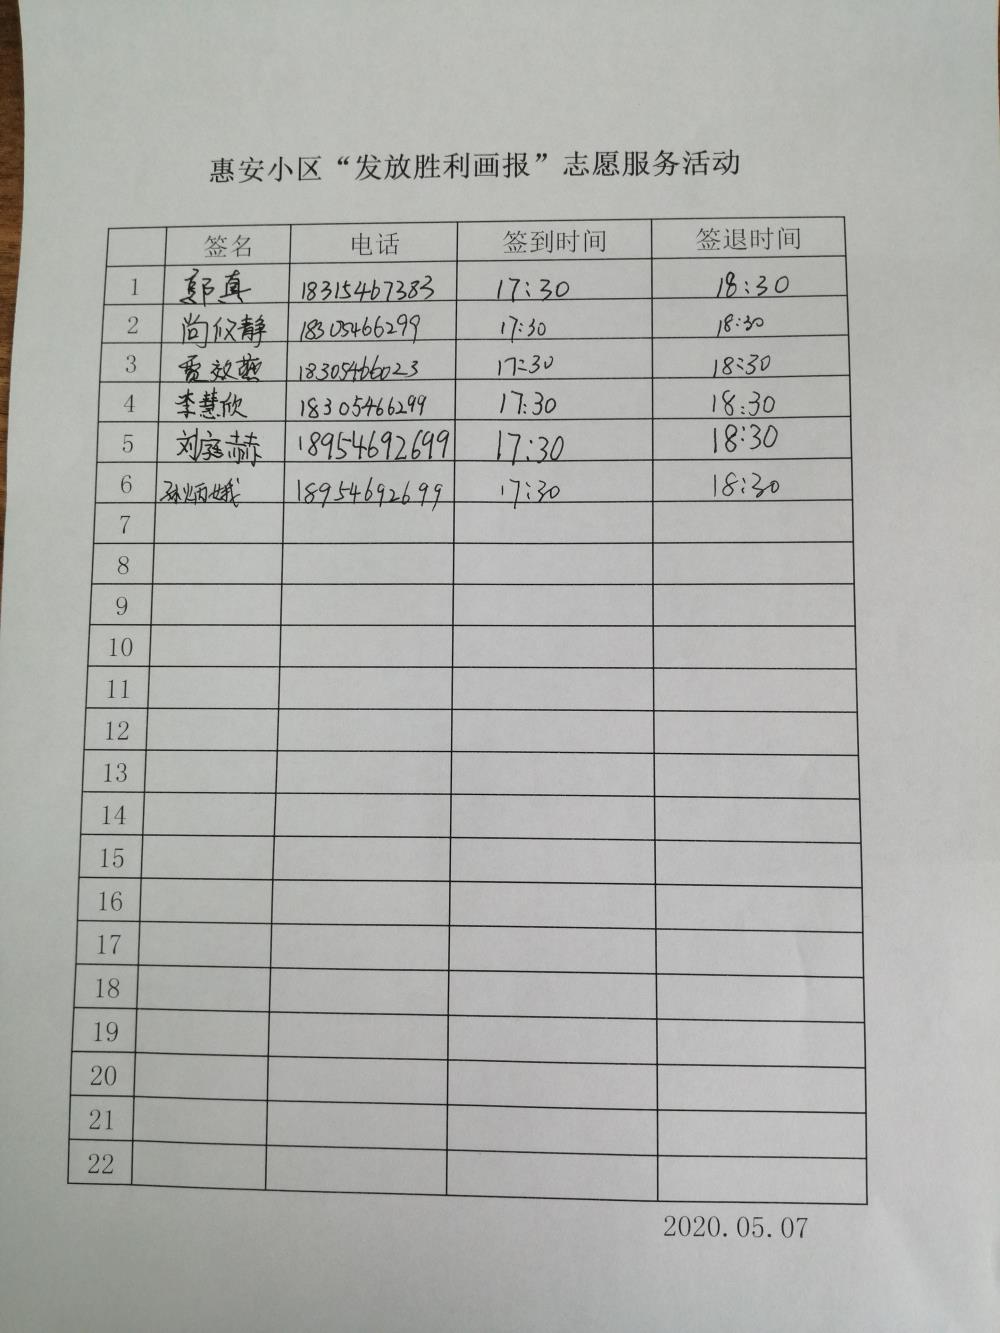 惠安小区“发放胜利画报”志愿服务活动
签名 电话 签到时间 签退时间
1 郭真 18315467383 17:30 18:30
2 尚仪静 18305466299 17:30 18:30
3 贾效燕 18305466023 17:30 18:30
4 李慧欣 18305466299 17:30 18:30
5 刘庭赫 18954692699 17:30 18:30
6 孙炳娥 18954692699 17:30 18:30
7
8
9
10
11
12
13
14
15
16
17
18
19
20
21
22
2020.05.07